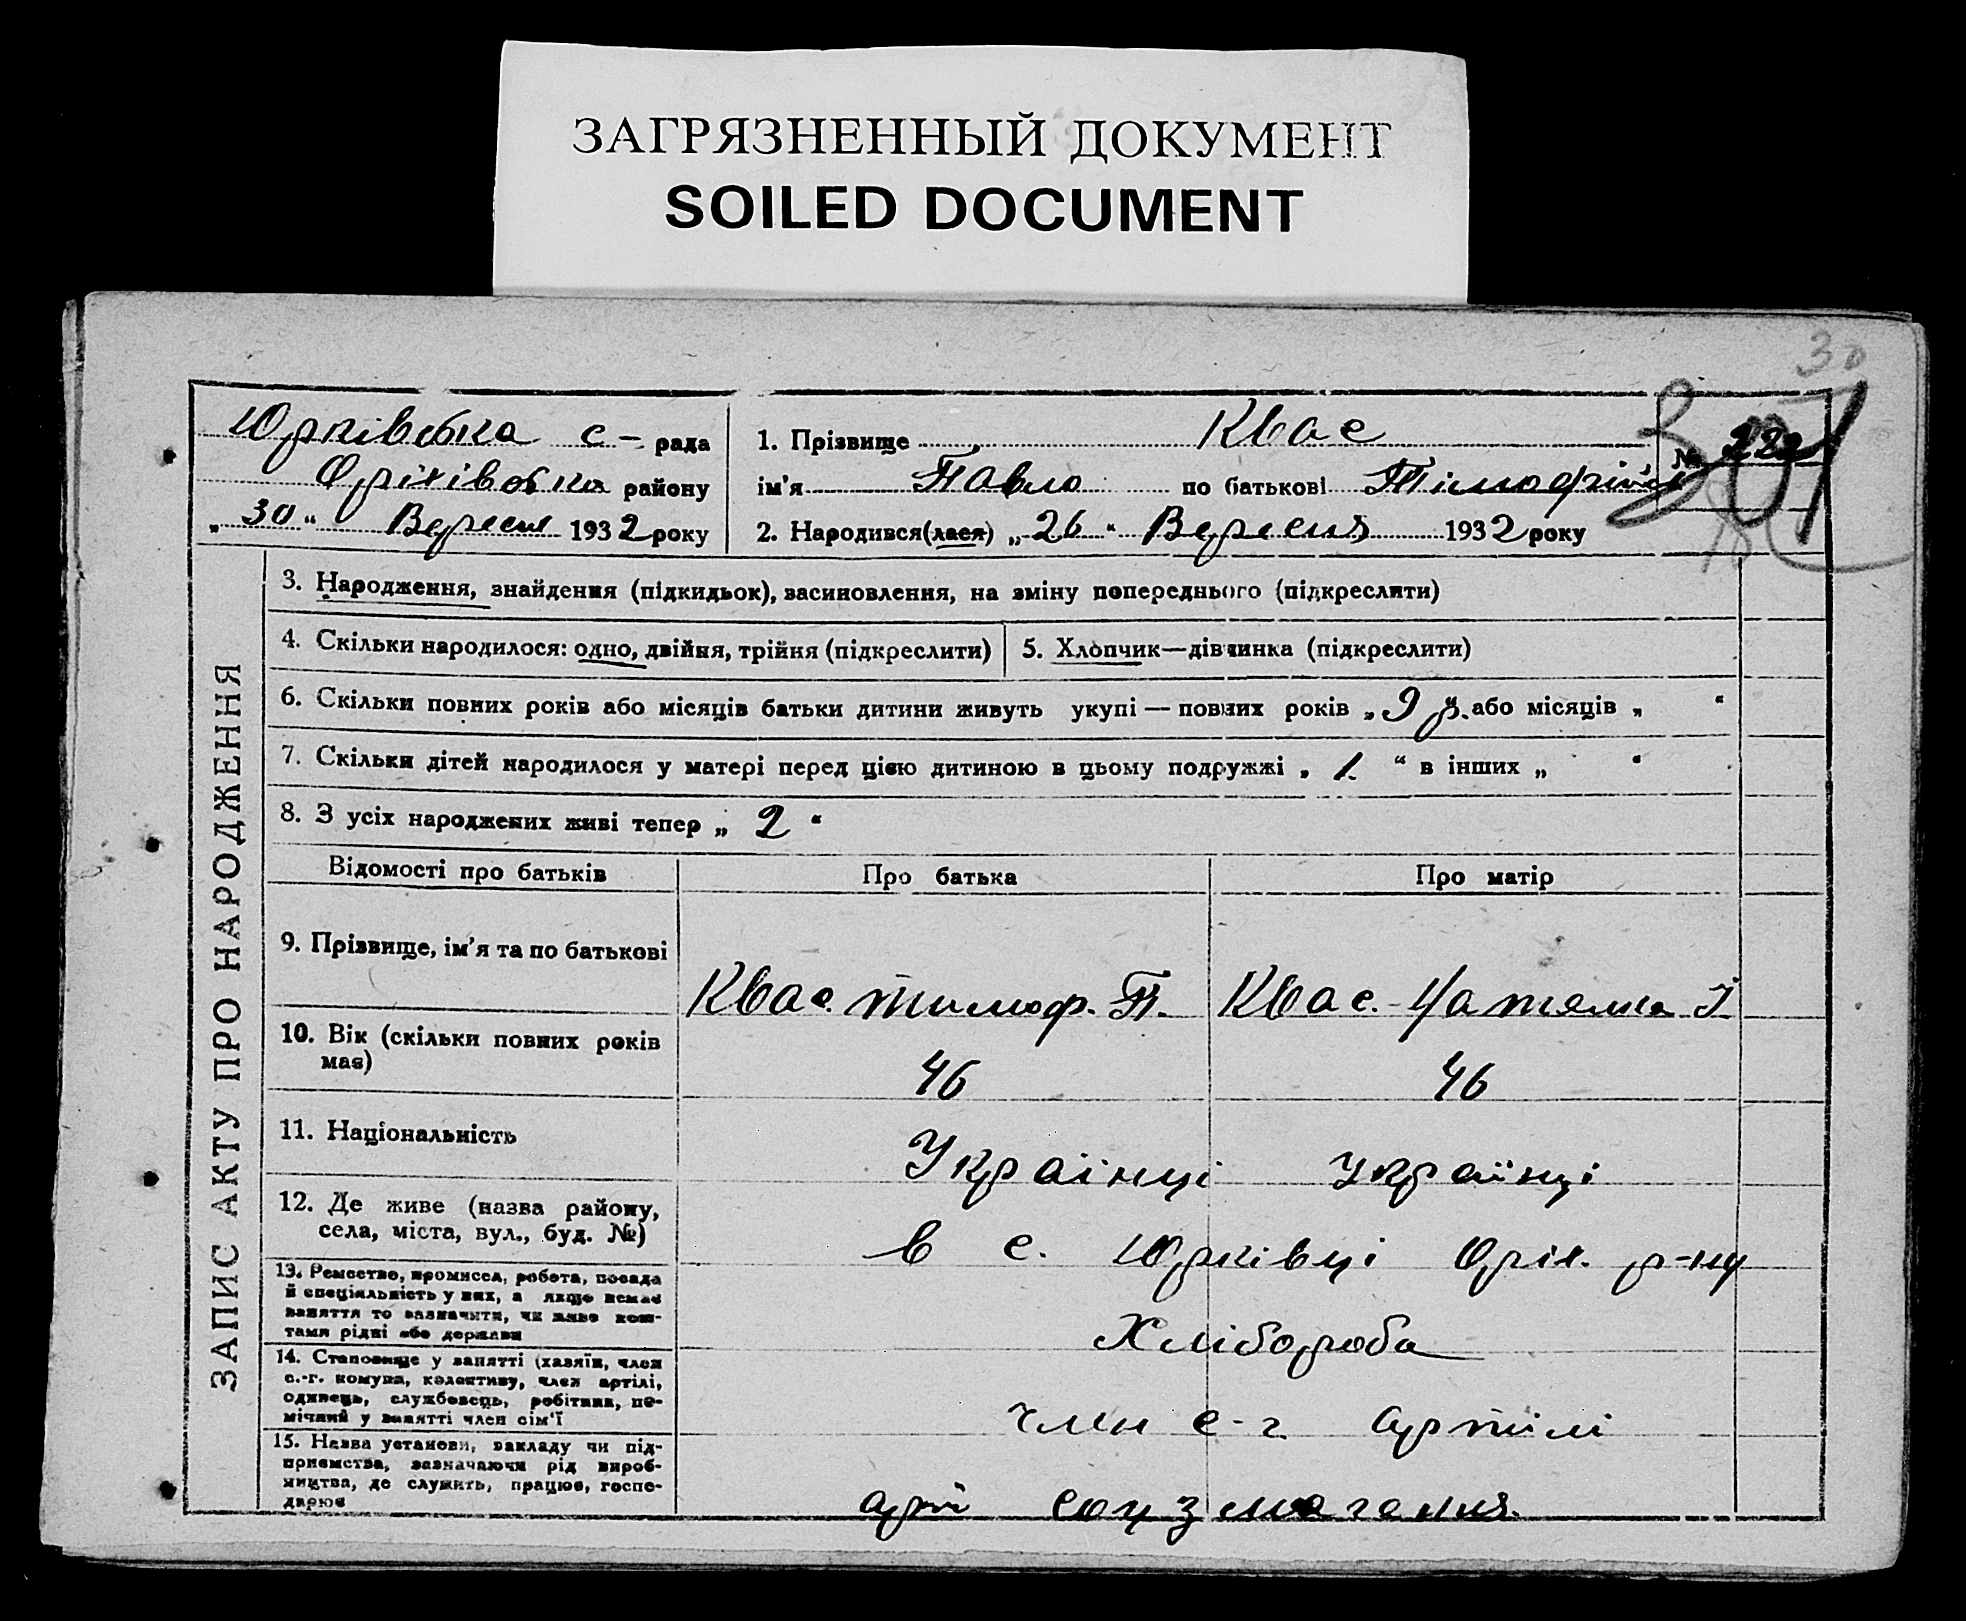 ЗАГРЯЗНЕННЫЙ ДОКУМЕНТ
SOILED DOCUMENT
30
Юрківська с- рада
Оріхівська району
„ 30 “ Вересня 1932 року
1. Прізвище Квас
ім'я Павло по батькові Тімофійов
2. Народився(лася) „ 26 “ Вересня 1932 року
№ 222
301
ЗАПИС АКТУ ПРО НАРОДЖЕННЯ
3. Народження, знайдення (підкидьок), васиновлення, на зміну попереднього (підкреслити)
4. Скільки народилося: одно, двійня, трійня (підкреслити)
5. Хлопчик—дівчинка (підкреслити)
6. Скільки повних років або місяців батьки дитини живуть укупі — повних років „ 9 р. “ або місяців „ “
7. Скільки дітей народилося у матері перед цією дитиною в цьому подружжі „ 1 “ в інших „ “
8. З усіх народжених живі тепер „ 2 “
Відомості про батьків Про батька Про матір
9. Прізвище, ім'я та по батькові
Квас Тимоф. П. Квас І.
10. Вік (скільки повних років
має)
46 46
11. Національність
Українці Українці
12. Де живе (назва району,
села, міста, вул., буд. №)
в с. Юрківці Оріх. р-ну
13. Ремество, промисел, робота, посада
й спеціяльність у них, а якщо немає
заняття то зазначити, чи живе кош-
тами рідні або держави
Хлібороба
14. Становище у занятті (хазяїн, член
с.-г. комуни, колективу, член артілі,
одинець, службовець, робітник, по-
мічний у занятті член сім'ї
член с-г. артілі
15. Назва установи, закладу чи під-
приємства, зазначаючи рід вироб-
ництва, де служить, працює, госпо-
дарює
арт соцзмагання.